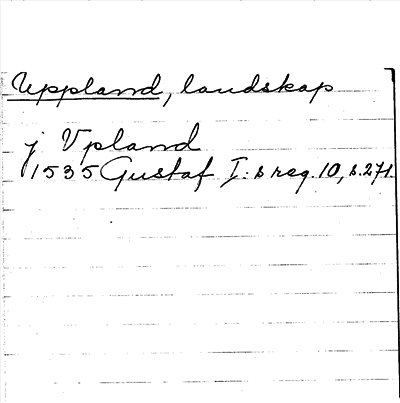 Uppland, landskap
j Vpland
1535 Gustaf I:s reg. 10, s. 271.